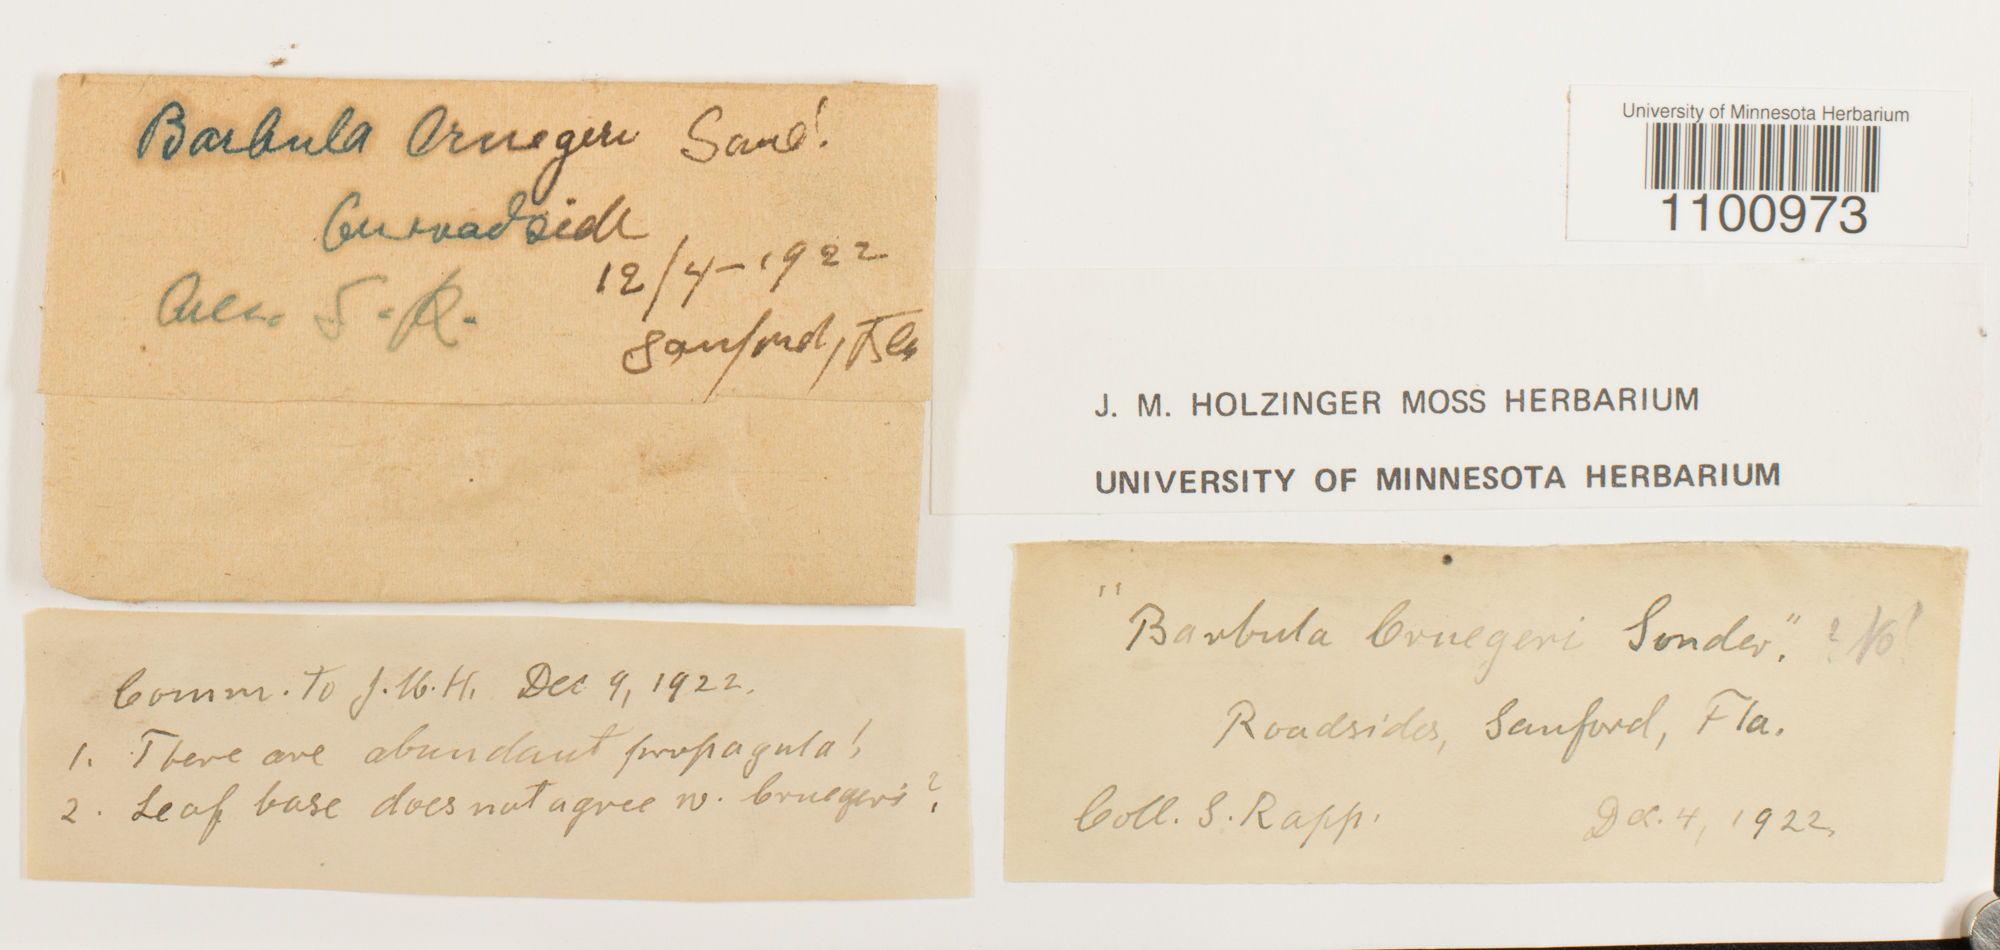 Barbula Cruegeri Sond!
On roadside
12/4-1922
Coll. S. R.
Sanford, Fla
University of Minnesota Herbarium
1100973
J. M. HOLZINGER MOSS HERBARIUM
UNIVERSITY OF MINNESOTA HERBARIUM
Comm. to J. M. H. Dec 9, 1922.
1. There are abundant propagula!
2. Leaf base does not agree w. Cruegeri?
"Barbula Cruegeri Sonder." ? No!
Roadsides, Sanford, Fla.
Coll. S. Rapp. Dec. 4, 1922.